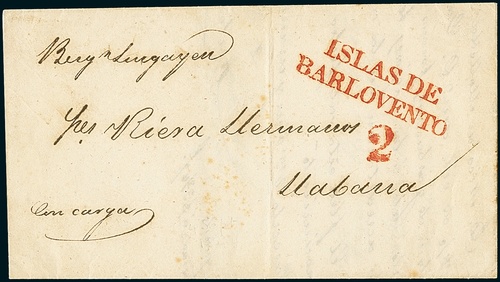 Berg.n Lingayen
ISLAS DE
BARLOVENTO
2
Sres Riera Hermanos
Habana
Con carga